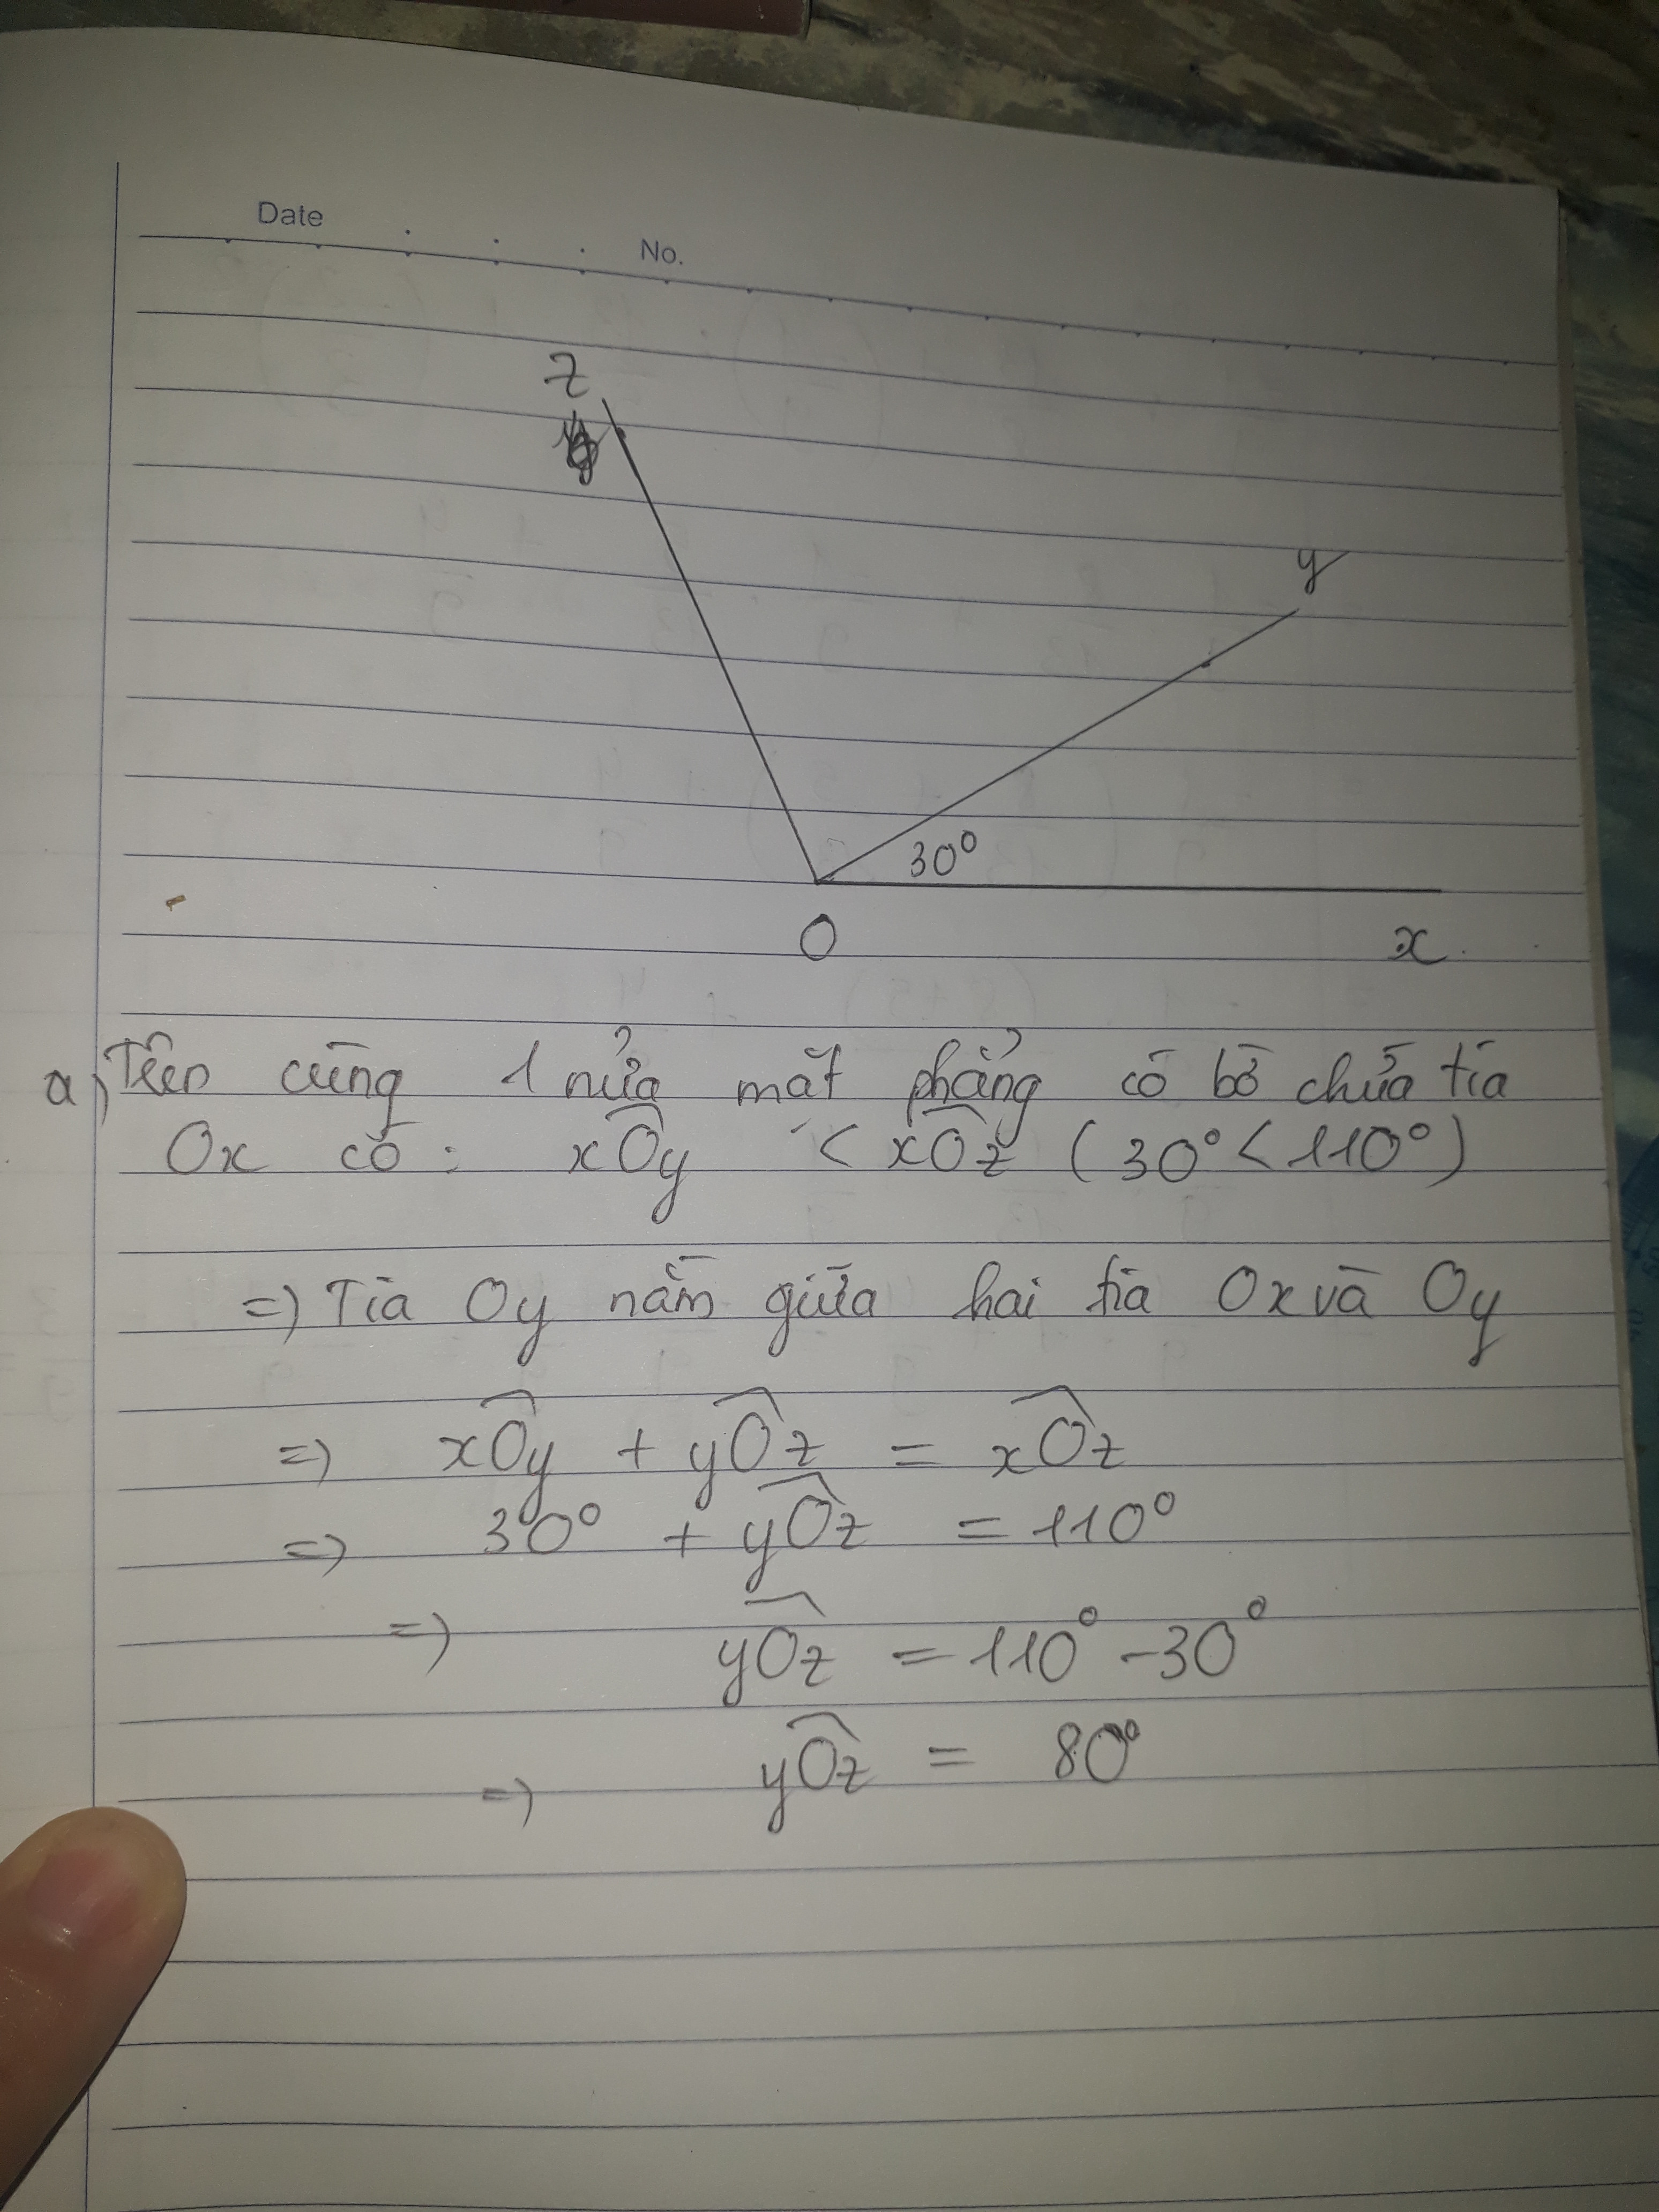 Date
No.
z
y
30°
O
x
a) Trên cùng 1 nửa mặt phẳng có bờ chứa tia
Ox có: xÔy < xÔz (30° < 110°)
=) Tia Oy nằm giữa hai tia Ox và Oy
=) xÔy + yÔz = xÔz
=) 30° + yÔz = 110°
=) yÔz = 110° - 30°
=) yÔz = 80°